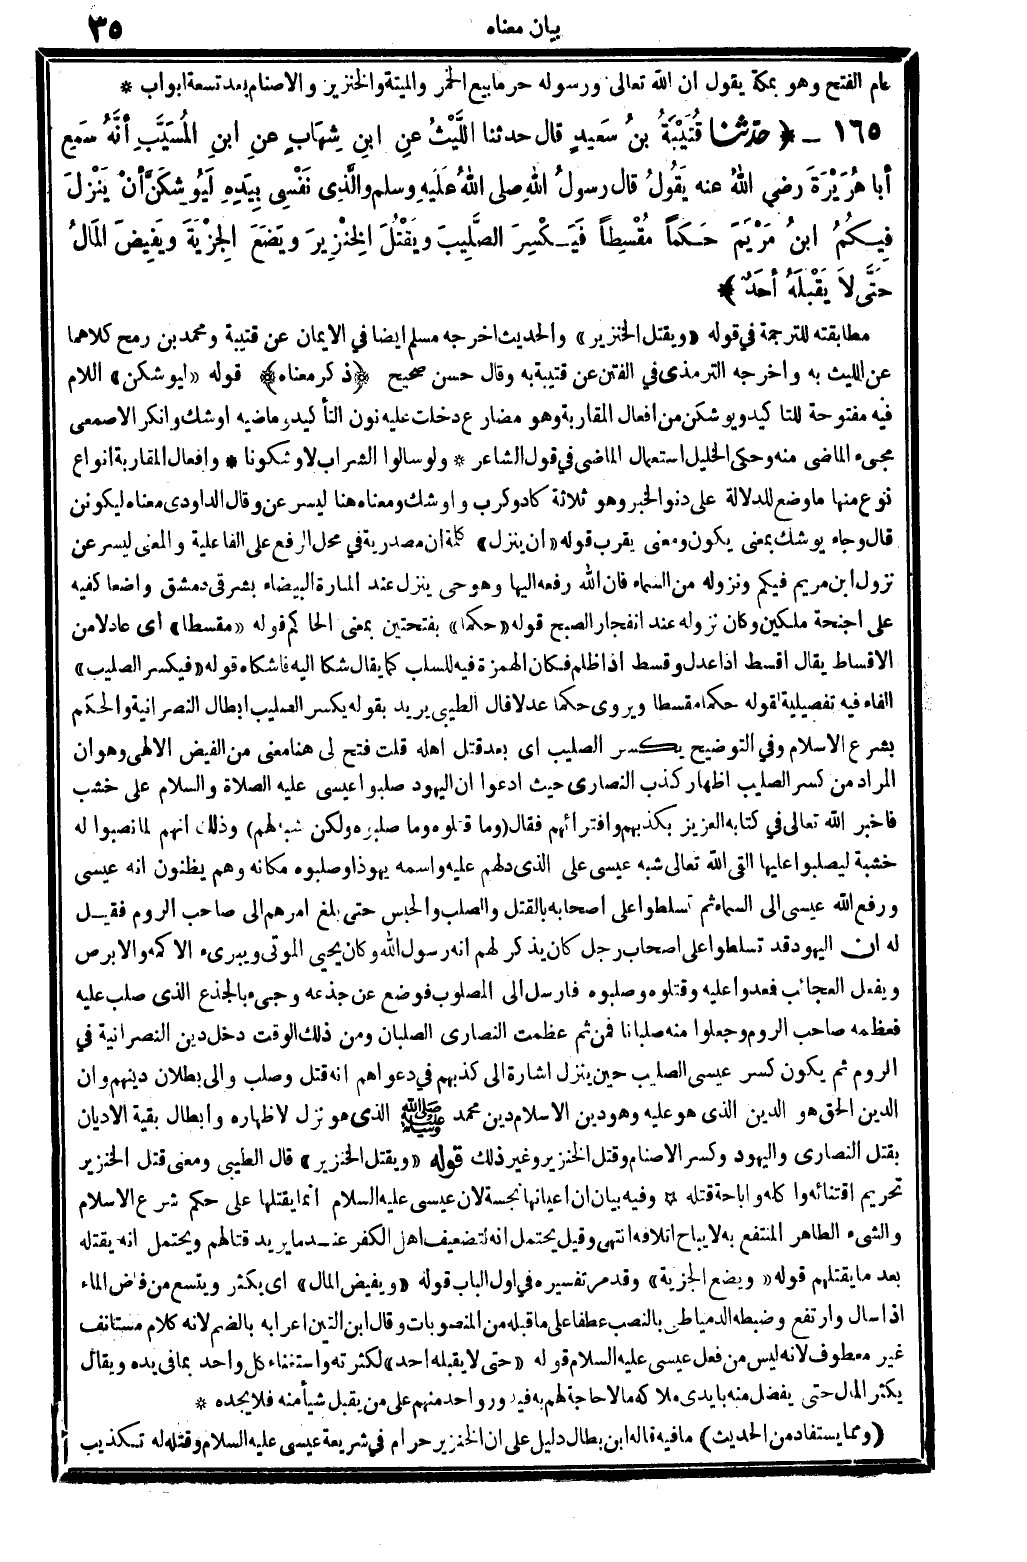 بيان معناه ٣٥
عام الفتح وهو بمكة يقول ان الله تعالى ورسوله حرما بيع الخمر والميتة والخنزير والاصنام بعد تسعة ابواب *
١٦٥ - ﴿ حدثنا قُتَيْبَةُ بنُ سَعِيدٍ قال حدثنا اللَّيْثُ عنِ ابنِ شِهَابٍ عنِ ابنِ المُسَيَّبِ أنَّهُ سَمِعَ
أبا هُرَيْرَةَ رضي اللهُ عنه يَقُولُ قال رسولُ اللهِ صلى اللهُ عَلَيهِ وسلم والَّذِى نَفْسِى بِيَدِهِ لَيُوشِكَنَّ أنْ يَنْزِلَ
فِيكُمُ ابنُ مَرْيَمَ حَكَماً مُقْسِطاً فَيَكْسِرَ الصَّلِيبَ ويَقْتُلَ الخِنْزِيرَ ويَضَعَ الجِزْيَةَ ويَفِيضَ المَالُ
حَتَّى لاَ يَقْبَلَهُ أحَدٌ ﴾
مطابقته للترجمة في قوله «ويقتل الخنزير» والحديث اخرجه مسلم ايضا في الايمان عن قتيبة ومحمد بن رمح كلاهما
عن الليث به واخرجه الترمذى في الفتن عن قتيبة به وقال حسن صحيح ﴿ذكر معناه﴾ قوله «ليوشكن» اللام
فيه مفتوحة للتا كيد ويوشكن من افعال المقاربة وهو مضارع دخلت عليه نون التأكيد وماضيه اوشك وانكر الاصمعى
مجىء الماضى منه وحكى الخليل استعمال الماضى في قول الشاعر * ولو سالوا الشراب لاوشكونا * وافعال المقاربة انواع
نوع منها ما وضع للدلالة على دنو الخبر وهو ثلاثة كاد وكرب واوشك ومعناه هنا ليسر عن وقال الداودى معناه ليكونن
قال وجاء يوشك بمعنى يكون ومعنى يقرب قوله «ان ينزل» كلمة ان مصدرية في محل الرفع على الفاعلية والمعنى ليسر عن
نزول ابن مريم فيكم ونزوله من السماء فان الله رفعه اليها وهو حى ينزل عند المنارة البيضاء بشرقى دمشق واضعا كفيه
على اجنحة ملكين وكان نزوله عند انفجار الصبح قوله «حكما» بفتحتين بمعنى الحاكم قوله «مقسطا» أى عادلا من
الاقساط يقال اقسط اذا عدل وقسط اذا ظلم فكان الهمزة فيه للسلب كما يقال شكا اليه فاشكاه قوله «فيكسر الصليب»
الفاء فيه تفصيلية لقوله حكما مقسطا ويروى حكما عدلا قال الطيبى يريد بقوله يكسر الصليب ابطال النصرانية والحكم
بشرع الاسلام وفي التوضيح يكسر الصليب اى بعد قتل اهله قلت فتح لى هنا معنى من الفيض الالهى وهو ان
المراد من كسر الصليب اظهار كذب النصارى حيث ادعوا ان اليهود صلبوا عيسى عليه الصلاة والسلام على خشب
فاخبر الله تعالى في كتابه العزيز بكذبهم وافترائهم فقال (وما قتلوه وما صلبوه ولكن شبه لهم) وذلك انهم لما نصبوا له
خشبة ليصلبوا عليها القى الله تعالى شبه عيسى على الذى دلهم عليه واسمه يهوذا وصلبوه مكانه وهم يظنون انه عيسى
ورفع الله عيسى الى السماء ثم تسلطوا على اصحابه بالقتل والصلب والحبس حتى بلغ امرهم الى صاحب الروم فقيل
له ان اليهود قد تسلطوا على اصحاب رجل كان يذكر لهم انه رسول الله وكان يحيى الموتى ويبرىء الاكمه والابرص
ويفعل العجائب فعدوا عليه وقتلوه وصلبوه فارسل الى المصلوب فوضع عن جذعه وجىء بالجذع الذى صلب عليه
فعظمه صاحب الروم وجعلوا منه صلبانا فمن ثم عظمت النصارى الصلبان ومن ذلك الوقت دخل دين النصرانية في
الروم ثم يكون كسر عيسى الصليب حين ينزل اشارة الى كذبهم في دعواهم انه قتل وصلب والى بطلان دينهم وان
الدين الحق هو الدين الذى هو عليه وهو دين الاسلام دين محمد ﷺ الذى هو نزل لاظهاره وابطال بقية الاديان
بقتل النصارى واليهود وكسر الاصنام وقتل الخنزير وغير ذلك قوله «ويقتل الخنزير» قال الطيبى ومعنى قتل الخنزير
تحريم اقتنائه واكله واباحة قتله * وفيه بيان ان اعيانها نجسة لان عيسى عليه السلام انما يقتلها على حكم شرع الاسلام
والشىء الطاهر المنتفع به لا يباح اتلافه انتهى وقيل يحتمل انه لتضعيف اهل الكفر عند ما يريد قتالهم ويحتمل انه يقتله
بعد ما يقتلهم قوله «ويضع الجزية» وقد مر تفسيره في اول الباب قوله «ويفيض المال» اى يكثر ويتسع من فاض الماء
اذا سال وارتفع وضبطه الدمياطى بالنصب عطفا على ما قبله من المنصوبات وقال ابن التين اعرابه بالضم لانه كلام مستانف
غير معطوف لانه ليس من فعل عيسى عليه السلام قوله «حتى لا يقبله احد» لكثرته واستغناء كل واحد بما في يده ويقال
يكثر المال حتى يفضل منه بايدى ملاكه ما لا حاجة لهم به فيدور واحد منهم على من يقبل شيأ منه فلا يجده *
(ومما يستفاد من الحديث) ما فيه قاله ابن بطال دليل على ان الخنزير حرام في شريعة عيسى عليه السلام وقتله له تكذيب